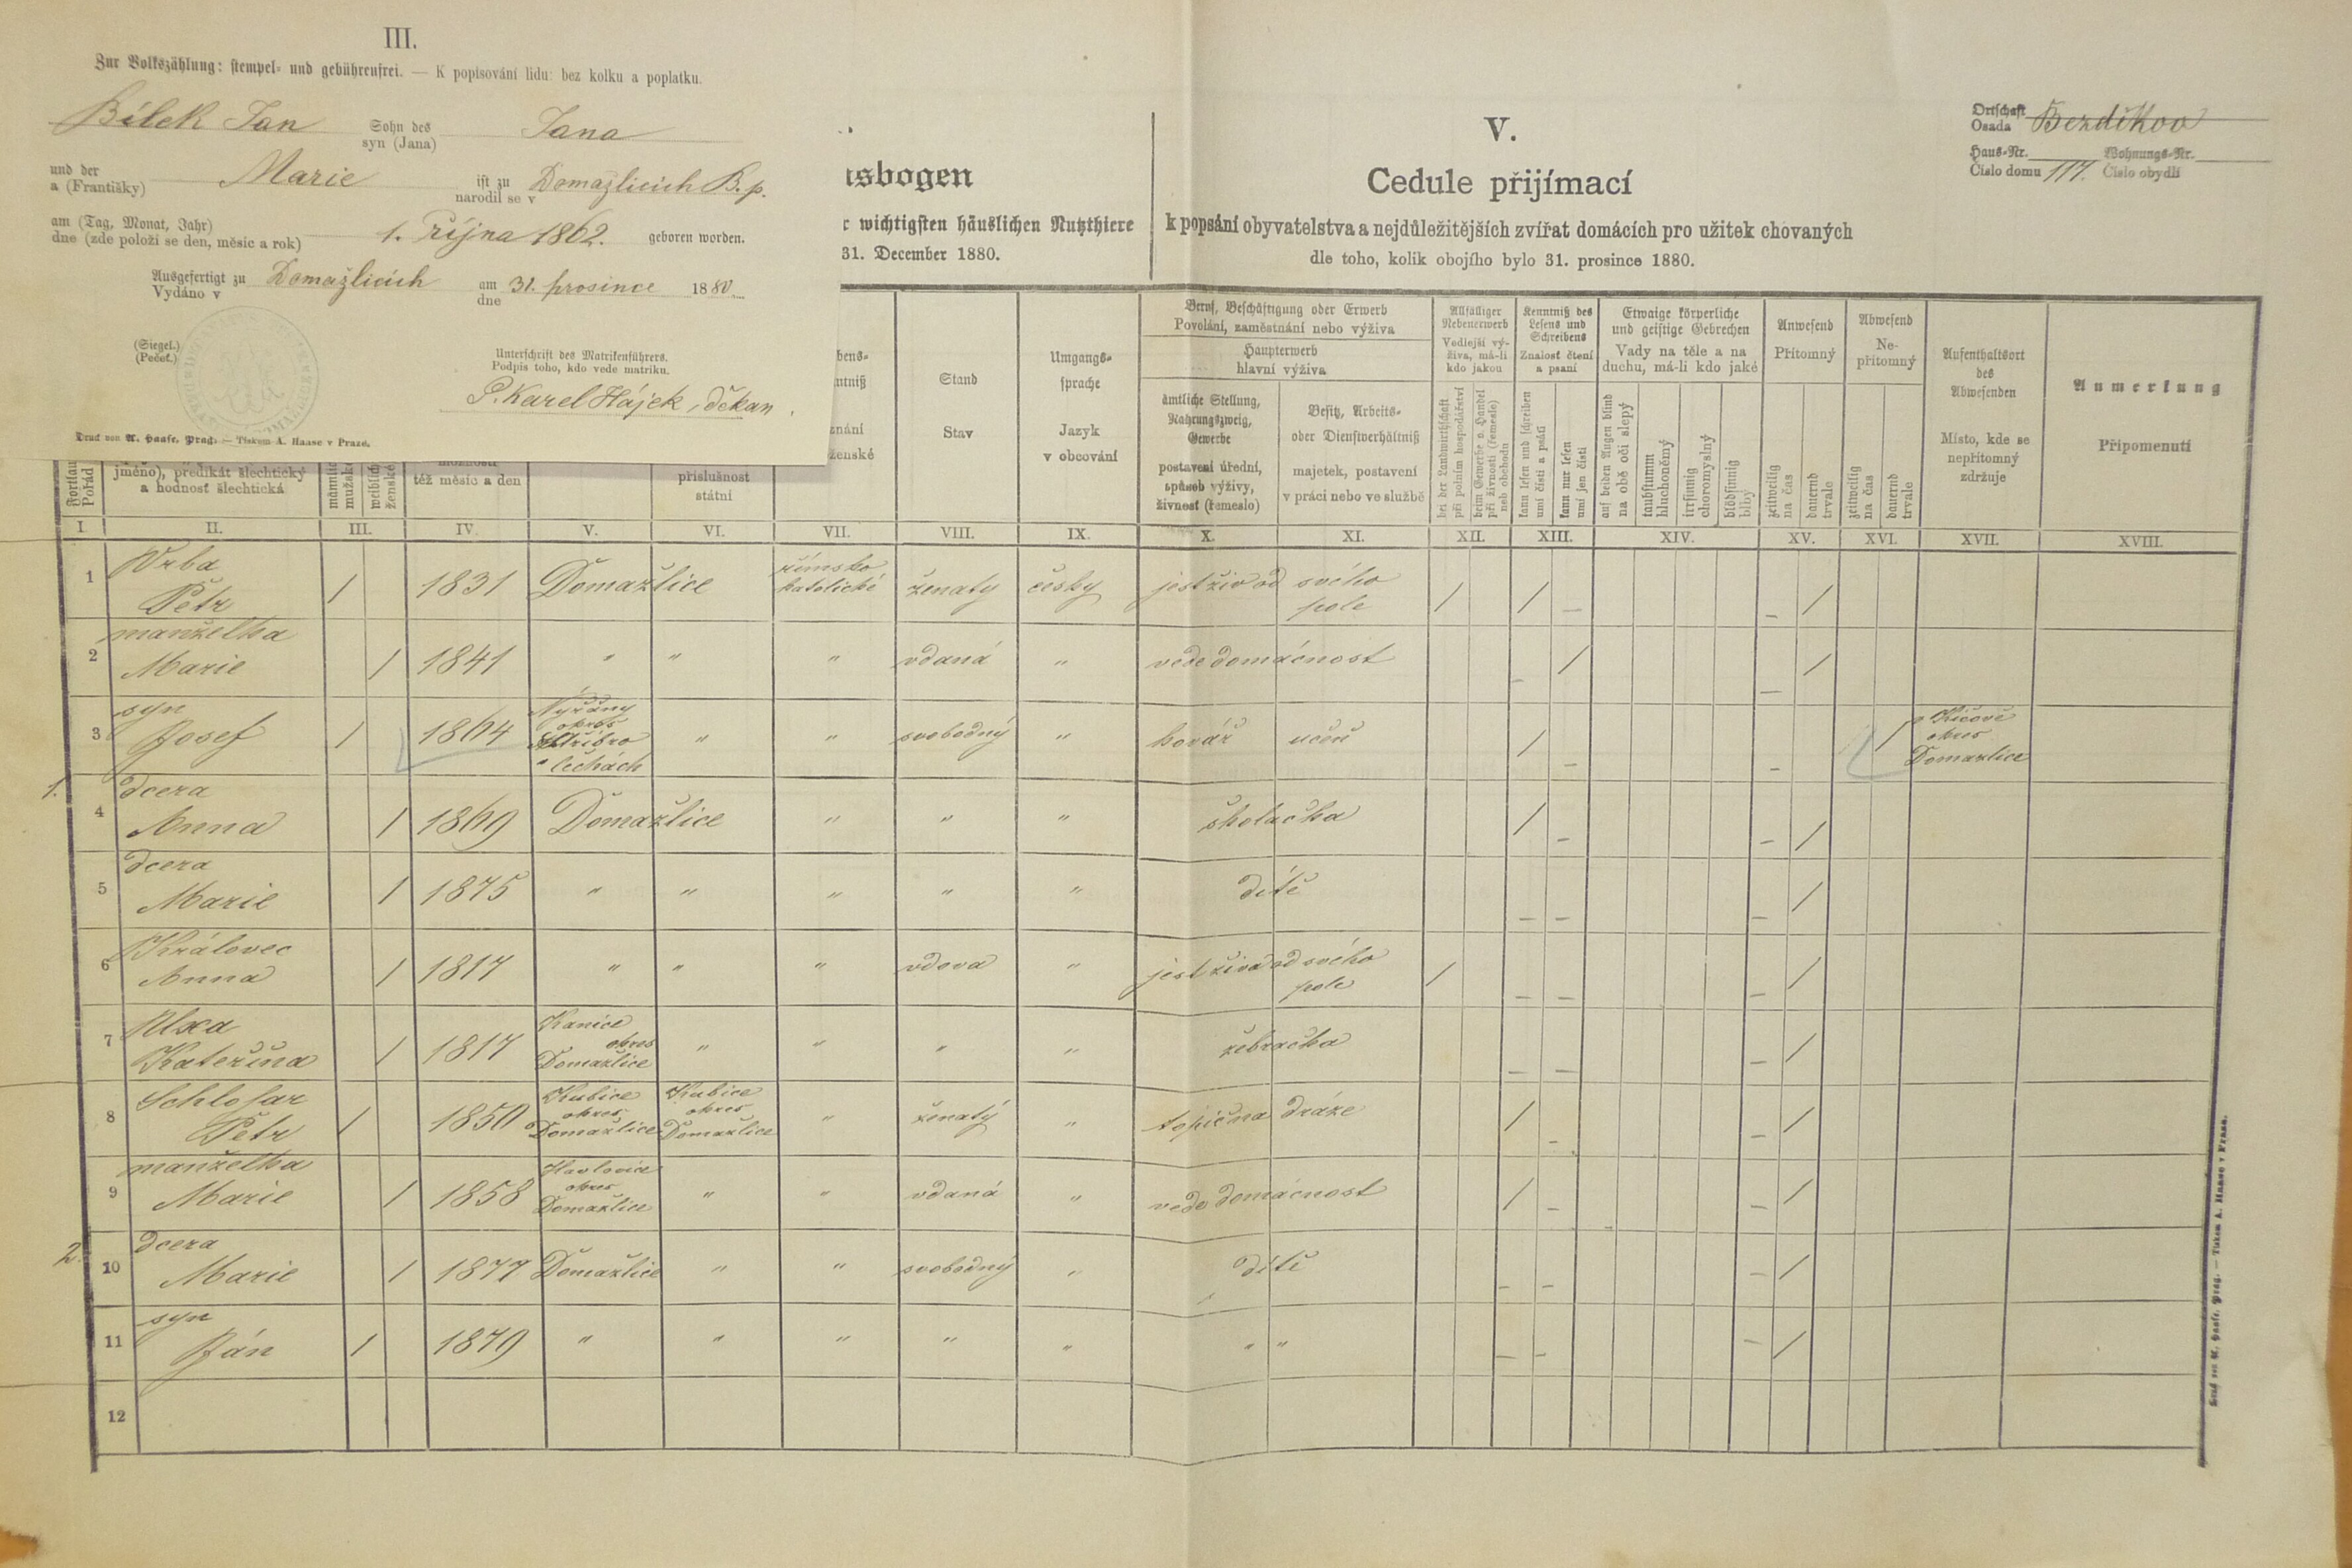 III.
Zur Volkszählung: stempel- und gebührenfrei. — K popisování lidu: bez kolku a poplatku.
Bílek Jan Sohn des Jana
syn (Jana)
und der Marie ist zu Domažlicích B. p.
a (Františky) narodil se v
am (Tag, Monat, Jahr)
dne (zde položí se den, měsíc a rok) 1. Října 1862. geboren worden.
Ausgefertigt zu Domažlicích am 31. prosince 1880
Vydáno v dne
(Siegel.)
(Pečeť.)
Unterschrift des Matrikenführers.
Podpis toho, kdo vede matriku.
P. Karel Hájek, děkan.
Druck von A. Haase, Prag. — Tiskem A. Haase v Praze.
sbogen
wichtigsten häuslichen Nutzthiere
31. December 1880.
V.
Cedule přijímací
k popsání obyvatelstva a nejdůležitějších zvířat domácích pro užitek chovaných
dle toho, kolik obojího bylo 31. prosince 1880.
Ortschaft
Osada Bezděkov
Haus-Nr. Wohnungs-Nr.
Číslo domu 117. Číslo obydlí
jméno), predikát šlechtický
a hodnosť šlechtická
männlich
mužské
weiblich
ženské
též měsíc a den
příslušnost
státní
Stand
Stav
Umgangs-
sprache
Jazyk
v obcování
Beruf, Beschäftigung oder Erwerb
Povolání, zaměstnání nebo výživa
Haupterwerb
hlavní výživa
ämtliche Stellung,
Nahrungszweig,
Gewerbe
postavení úřední,
spůsob výživy,
živnosť (řemeslo)
Besitz, Arbeits-
oder Dienstverhältniß
majetek, postavení
v práci nebo ve službě
Allfälliger
Nebenerwerb
Vedlejší vý-
živa, má-li
kdo jakou
bei der Landwirthschaft
při polním hospodářství
beim Gewerbe o. Handel
při živnosti (řemesle)
neb obchodu
Kenntniß des
Lesens und
Schreibens
Znalosť čtení
a psaní
kann lesen und schreiben
umí čísti a psáti
kann nur lesen
umí jen čísti
Etwaige körperliche
und geistige Gebrechen
Vady na těle a na
duchu, má-li kdo jaké
auf beiden Augen blind
na obě oči slepý
taubstumm
hluchoněmý
irrsinnig
choromyslný
blödsinnig
blbý
Anwesend
Přítomný
zeitweilig
na čas
dauernd
trvale
Abwesend
Ne-
přítomný
zeitweilig
na čas
dauernd
trvale
Aufenthaltsort
des
Abwesenden
Místo, kde se
nepřítomný
zdržuje
Anmerkung
Připomenutí
I. II. III. IV. V. VI. VII. VIII. IX. X. XI. XII. XIII. XIV. XV. XVI. XVII. XVIII.
1 Vrba Petr / 1831 Domažlice římsko katolické ženatý česky jest živ od svého pole / / – – /
2 manželka Marie / 1841 " " " vdaná " vede domácnost – / – /
3 syn Josef / 1864 Nýřany okres Stříbro v Čechách " " svobodný " kovář učeň / – – / v Kíčově okres Domažlice
1.
4 dcera Anna / 1869 Domažlice " " " školačka / – – /
5 dcera Marie / 1875 " " " " " dítě – – – /
6 Královec Anna / 1817 " " " vdova " jest živa od svého pole / – – – /
7 Kateřina / 1817 Kanice okres Domažlice " " " " žebračka – – – /
8 Schlosar Petr / 1850 Kubice okres Domažlice Kubice okres Domažlice " ženatý " topič na dráze / – – /
9 manželka Marie / 1858 Havlovice okres Domažlice " " vdaná " vede domácnost / – – /
2.
10 dcera Marie / 1877 Domažlice " " svobodný " dítě – – – /
11 syn Ján / 1879 " " " " " " " – – – /
12
Druck von A. Haase, Prag. — Tiskem A. Haase v Praze.